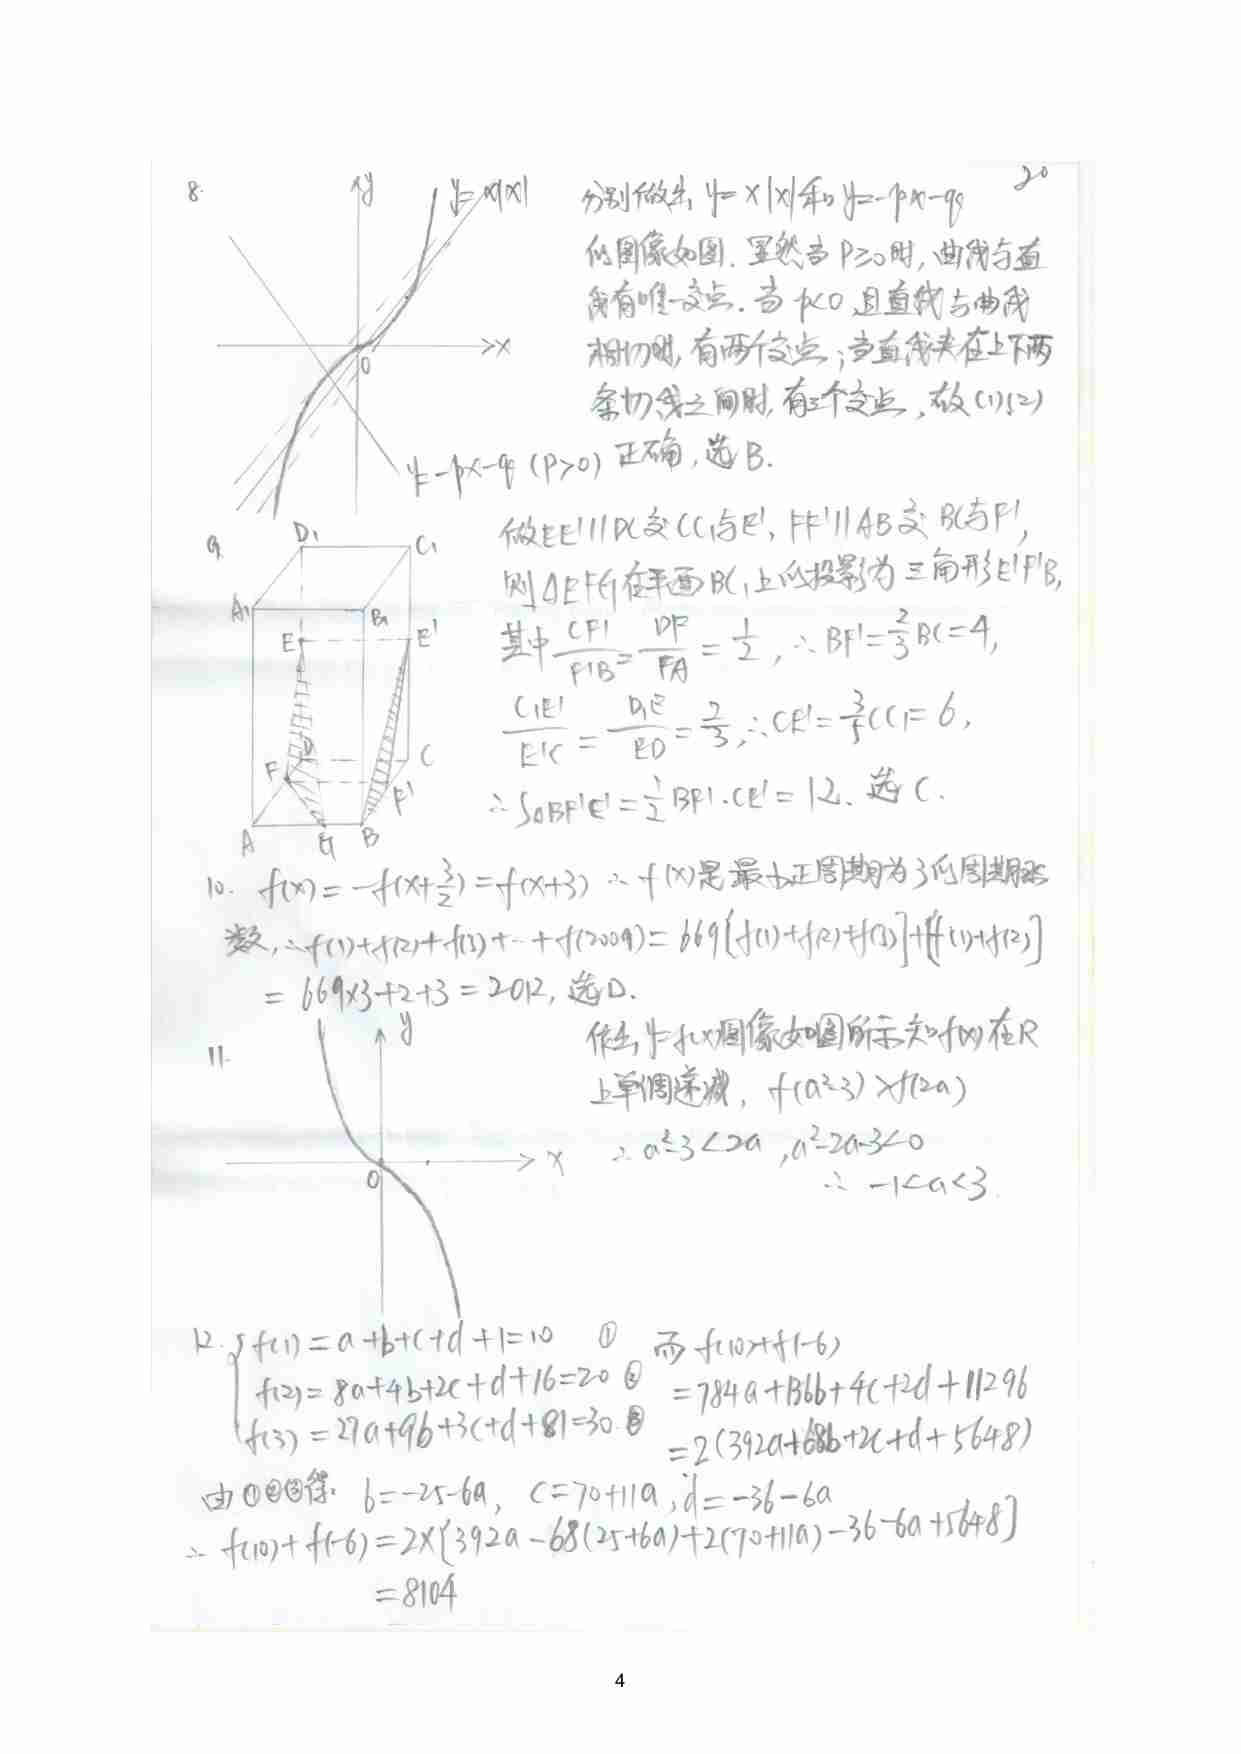 20
8.
y
y=x|x|
x
0
y=-px-q (p>0)
分别做出 y=x|x| 和 y=-px-q
的图像如图. 显然当 P≥0时, 曲线与直
线有唯一交点. 当 p<0 且直线与曲线
相切时, 有两个交点; 当直线夹在上下两
条切线之间时, 有三个交点, 故(1)(2)
正确, 选 B.
9.
D₁
C₁
A₁
B₁
E
E'
D
C
F
F'
A
G
B
做EE'//DC交CC₁与E', FF'//AB交 BC与F',
则△EFG在平面BC₁上的投影为三角形E'F'B,
其中 CF'/F'B = DF/FA = 1/2, ∴BF'=2/3BC=4,
C₁E'/E'C = D₁E/ED = 2/3, ∴CE'=3/5CC₁=6,
∴S△BF'E'=1/2BF'·CE'=12. 选 C.
10. f(x)=-f(x+3/2)=f(x+3) ∴ f(x)是最小正周期为3的周期函
数, ∴f(1)+f(2)+f(3)+…+f(2009)=669[f(1)+f(2)+f(3)]+[f(1)+f(2)]
=669×3+2+3=2012, 选D.
11.
y
x
0
作出y=f(x)图像如图所示知f(x)在R
上单调递减, f(a²-3)>f(2a)
∴a²-3<2a, a²-2a-3<0
∴ -1<a<3.
12. { f(1)=a+b+c+d+1=10 ①
f(2)=8a+4b+2c+d+16=20 ②
f(3)=27a+9b+3c+d+81=30. ③
而 f(10)+f(-6)
=784a+136b+4c+2d+11296
=2(392a+68b+2c+d+5648)
由①②③得: b=-25-6a, c=70+11a, d=-36-6a
∴ f(10)+f(-6)=2×[392a-68(25+6a)+2(70+11a)-36-6a+5648]
=8104
4